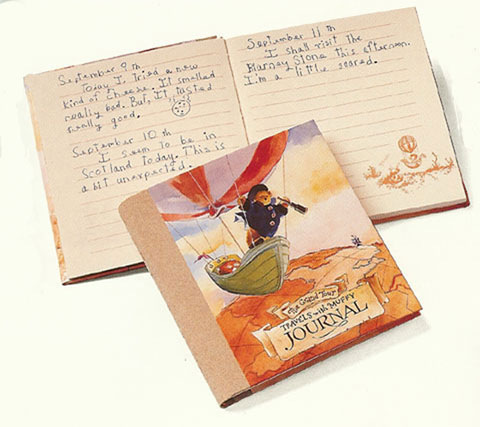 September 9th
Today I tried a new
kind of cheese. It smelled
really bad. But, it tasted
really good.
September 10th
I seem to be in
Scotland today. This is
a bit unexpected.
September 11th
I shall visit the
Blarney Stone this afternoon.
I'm a little scared.
A Grand Tour
TRAVELS with MUFFY
JOURNAL